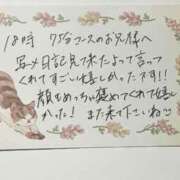 18時 75分コースのお兄様へ
写メ日記見て来たよって言って
くれてすごい嬉しかったです!!
顔もめっちゃ褒めてくれて嬉し
かった! また来て下さいね〜